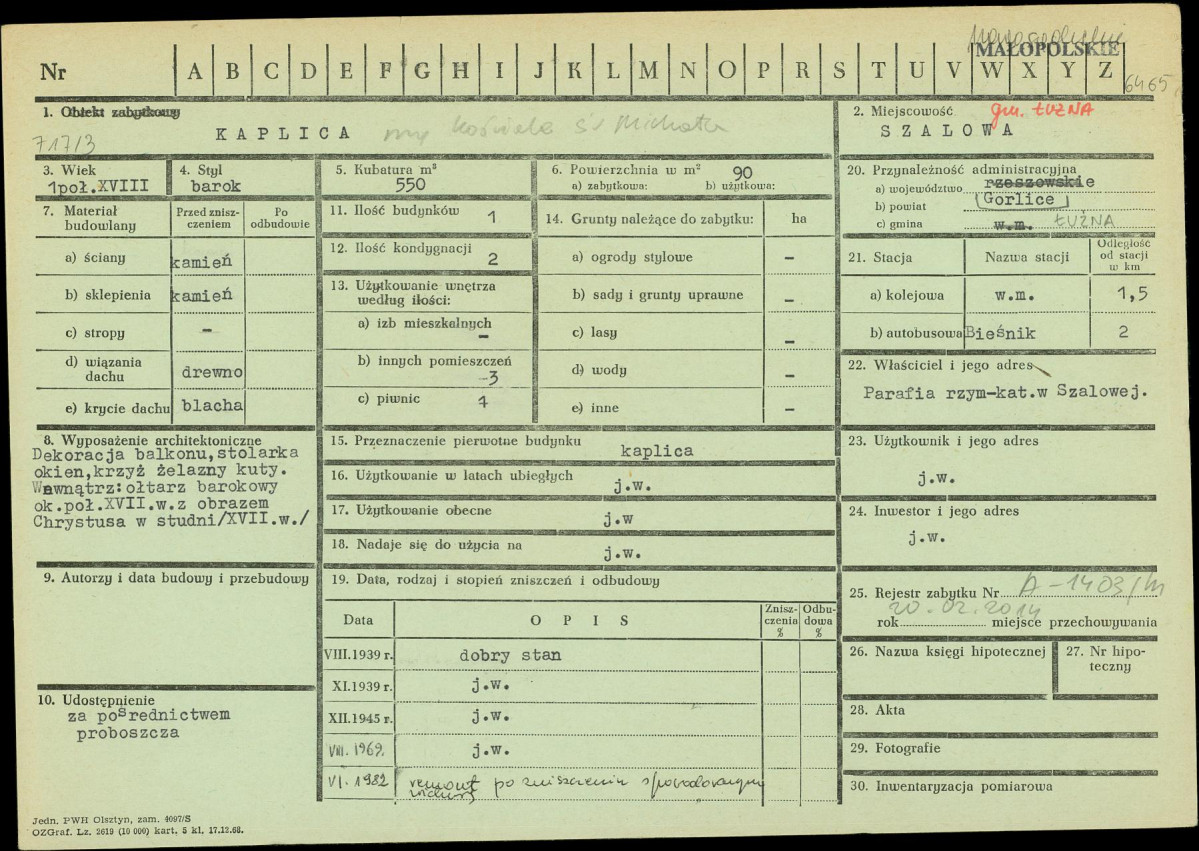 Nowosądeckie
MAŁOPOLSKIE
Nr A B C D E F G H I J K L M N O P R S T U V W X Y Z
6465
1. Obiekt zabytkowy
717/3
KAPLICA kościoła św Michała
2. Miejscowość gm. ŁUŻNA
SZALOWA
3. Wiek
1poł.XVIII
4. Styl
barok
5. Kubatura m³
550
6. Powierzchnia w m² 90
a) zabytkowa: b) użytkowa:
7. Materiał budowlany
Przed zniszczeniem
Po odbudowie
a) ściany kamień
b) sklepienia kamień
c) stropy –
d) wiązania dachu drewno
e) krycie dachu blacha
8. Wyposażenie architektoniczne
Dekoracja balkonu,stolarka
okien,krzyż żelazny kuty.
Wewnątrz:ołtarz barokowy
ok.poł.XVII.w.z obrazem
Chrystusa w studni/XVII.w./
9. Autorzy i data budowy i przebudowy
10. Udostępnienie
za pośrednictwem
proboszcza
11. Ilość budynków 1
12. Ilość kondygnacji 2
13. Użytkowanie wnętrza
według ilości:
a) izb mieszkalnych –
b) innych pomieszczeń –3
c) piwnic 1
14. Grunty należące do zabytku: ha
a) ogrody stylowe –
b) sady i grunty uprawne –
c) lasy –
d) wody –
e) inne –
15. Przeznaczenie pierwotne budynku
kaplica
16. Użytkowanie w latach ubiegłych
j.w.
17. Użytkowanie obecne
j.w
18. Nadaje się do użycia na
j.w.
19. Data, rodzaj i stopień zniszczeń i odbudowy
Data OPIS Zniszczenia % Odbudowa %
VIII.1939 r. dobry stan
XI.1939 r. j.w.
XII.1945 r. j.w.
VIII. 1969. j.w.
VI. 1982 remont po zniszczeniu spowodowanym
20. Przynależność administracyjna
a) województwo rzeszowskie
b) powiat Gorlice
c) gmina w.m. ŁUŻNA
21. Stacja Nazwa stacji Odległość od stacji w km
a) kolejowa w.m. 1,5
b) autobusowa Bieśnik 2
22. Właściciel i jego adres
Parafia rzym-kat.w Szalowej.
23. Użytkownik i jego adres
j.w.
24. Inwestor i jego adres
j.w.
25. Rejestr zabytku Nr A-1403/M
20.02.2014
rok miejsce przechowywania
26. Nazwa księgi hipotecznej
27. Nr hipoteczny
28. Akta
29. Fotografie
30. Inwentaryzacja pomiarowa
Jedn. PWH Olsztyn, zam. 4097/S
OZGraf. Lz. 2619 (10 000) kart. 5 kl. 17.12.68.